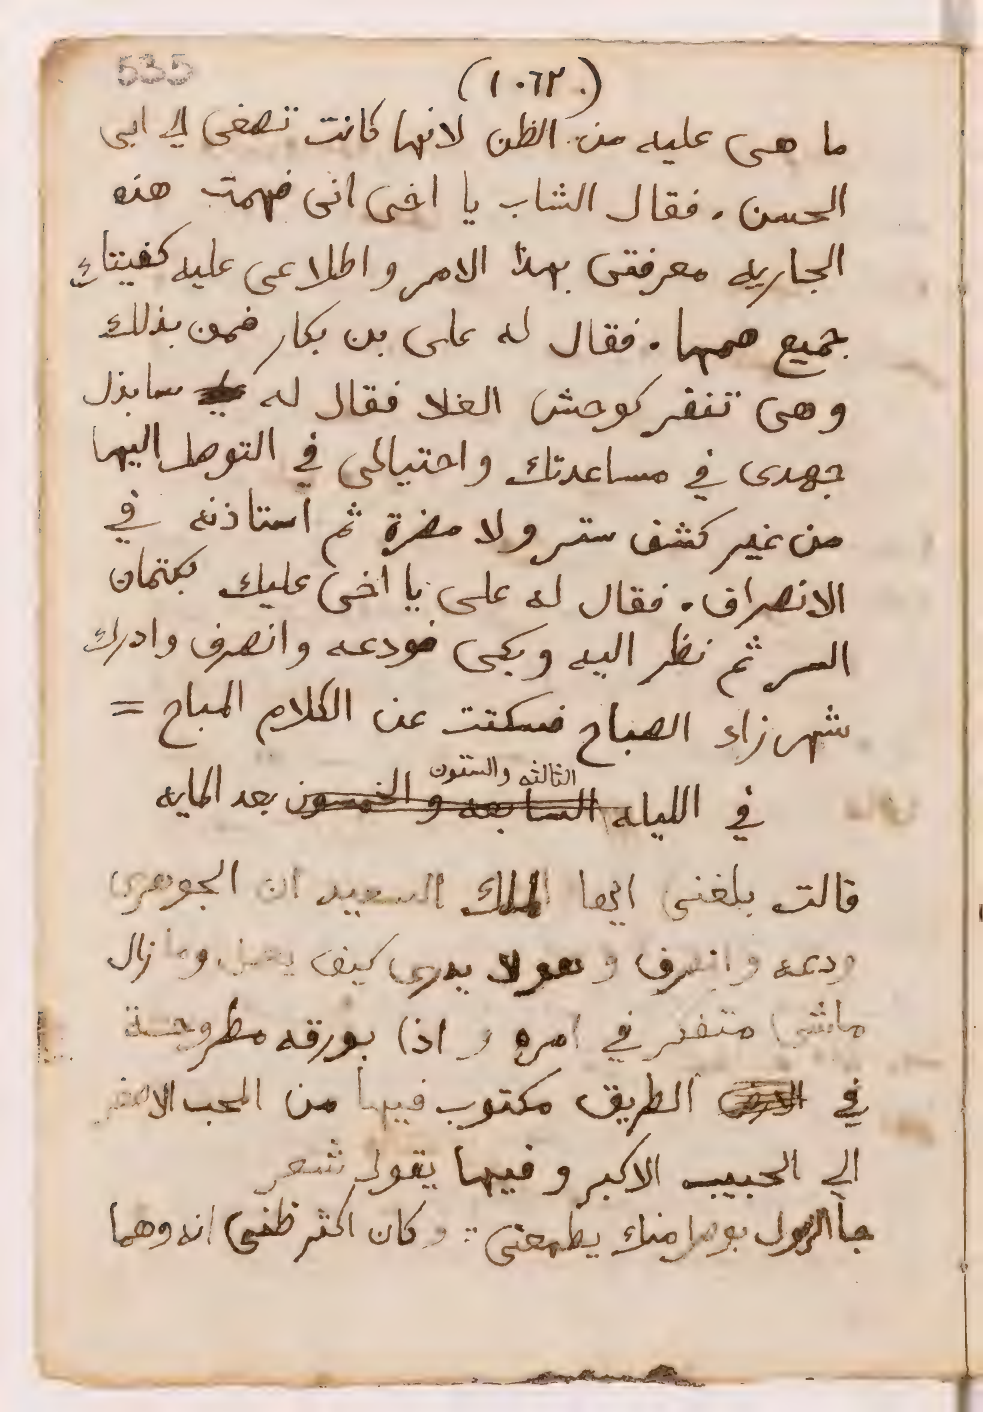 535
(١٠٦٢)
ما هى عليه من الظن لانها كانت تصغى الى ابى
الحسن . فقال الشاب يا اخى انى فهمت هذه
الجاريه معرفتى بهذا الامر و اطلاعى عليه
جميع همها . فقال له على بن بكار فمن بذلك
وهى تنفر كوحش الفلا فقال له سابذل
جهدى في مساعدتك واحتيالى في التوصل اليها
من غير كشف ستر ولا مضرة ثم استاذنه في
الانصراف . فقال له على يا اخى عليك بكتمان
السر ثم نظر اليه وبكى فودعه وانصرف وادرك
شهرزاد الصباح فسكتت عن الكلام المباح =
في الليله السابعه و الخمسون الثالثه والستون بعد المايه
قالت بلغنى ايها الملك السعيد ان الجوهرى
ودعه وانصرف و هو لا يدرى كيف يعمل وما زال
ماشى متفكر في امره و اذا بورقه مطروحة
في الطريق مكتوب فيها من المحب الاصغر
الى الحبيب الاكبر و فيها يقول شعر
جا الرسول بوصل منك يطمعنى : وكان اكثر ظنى انه وهما